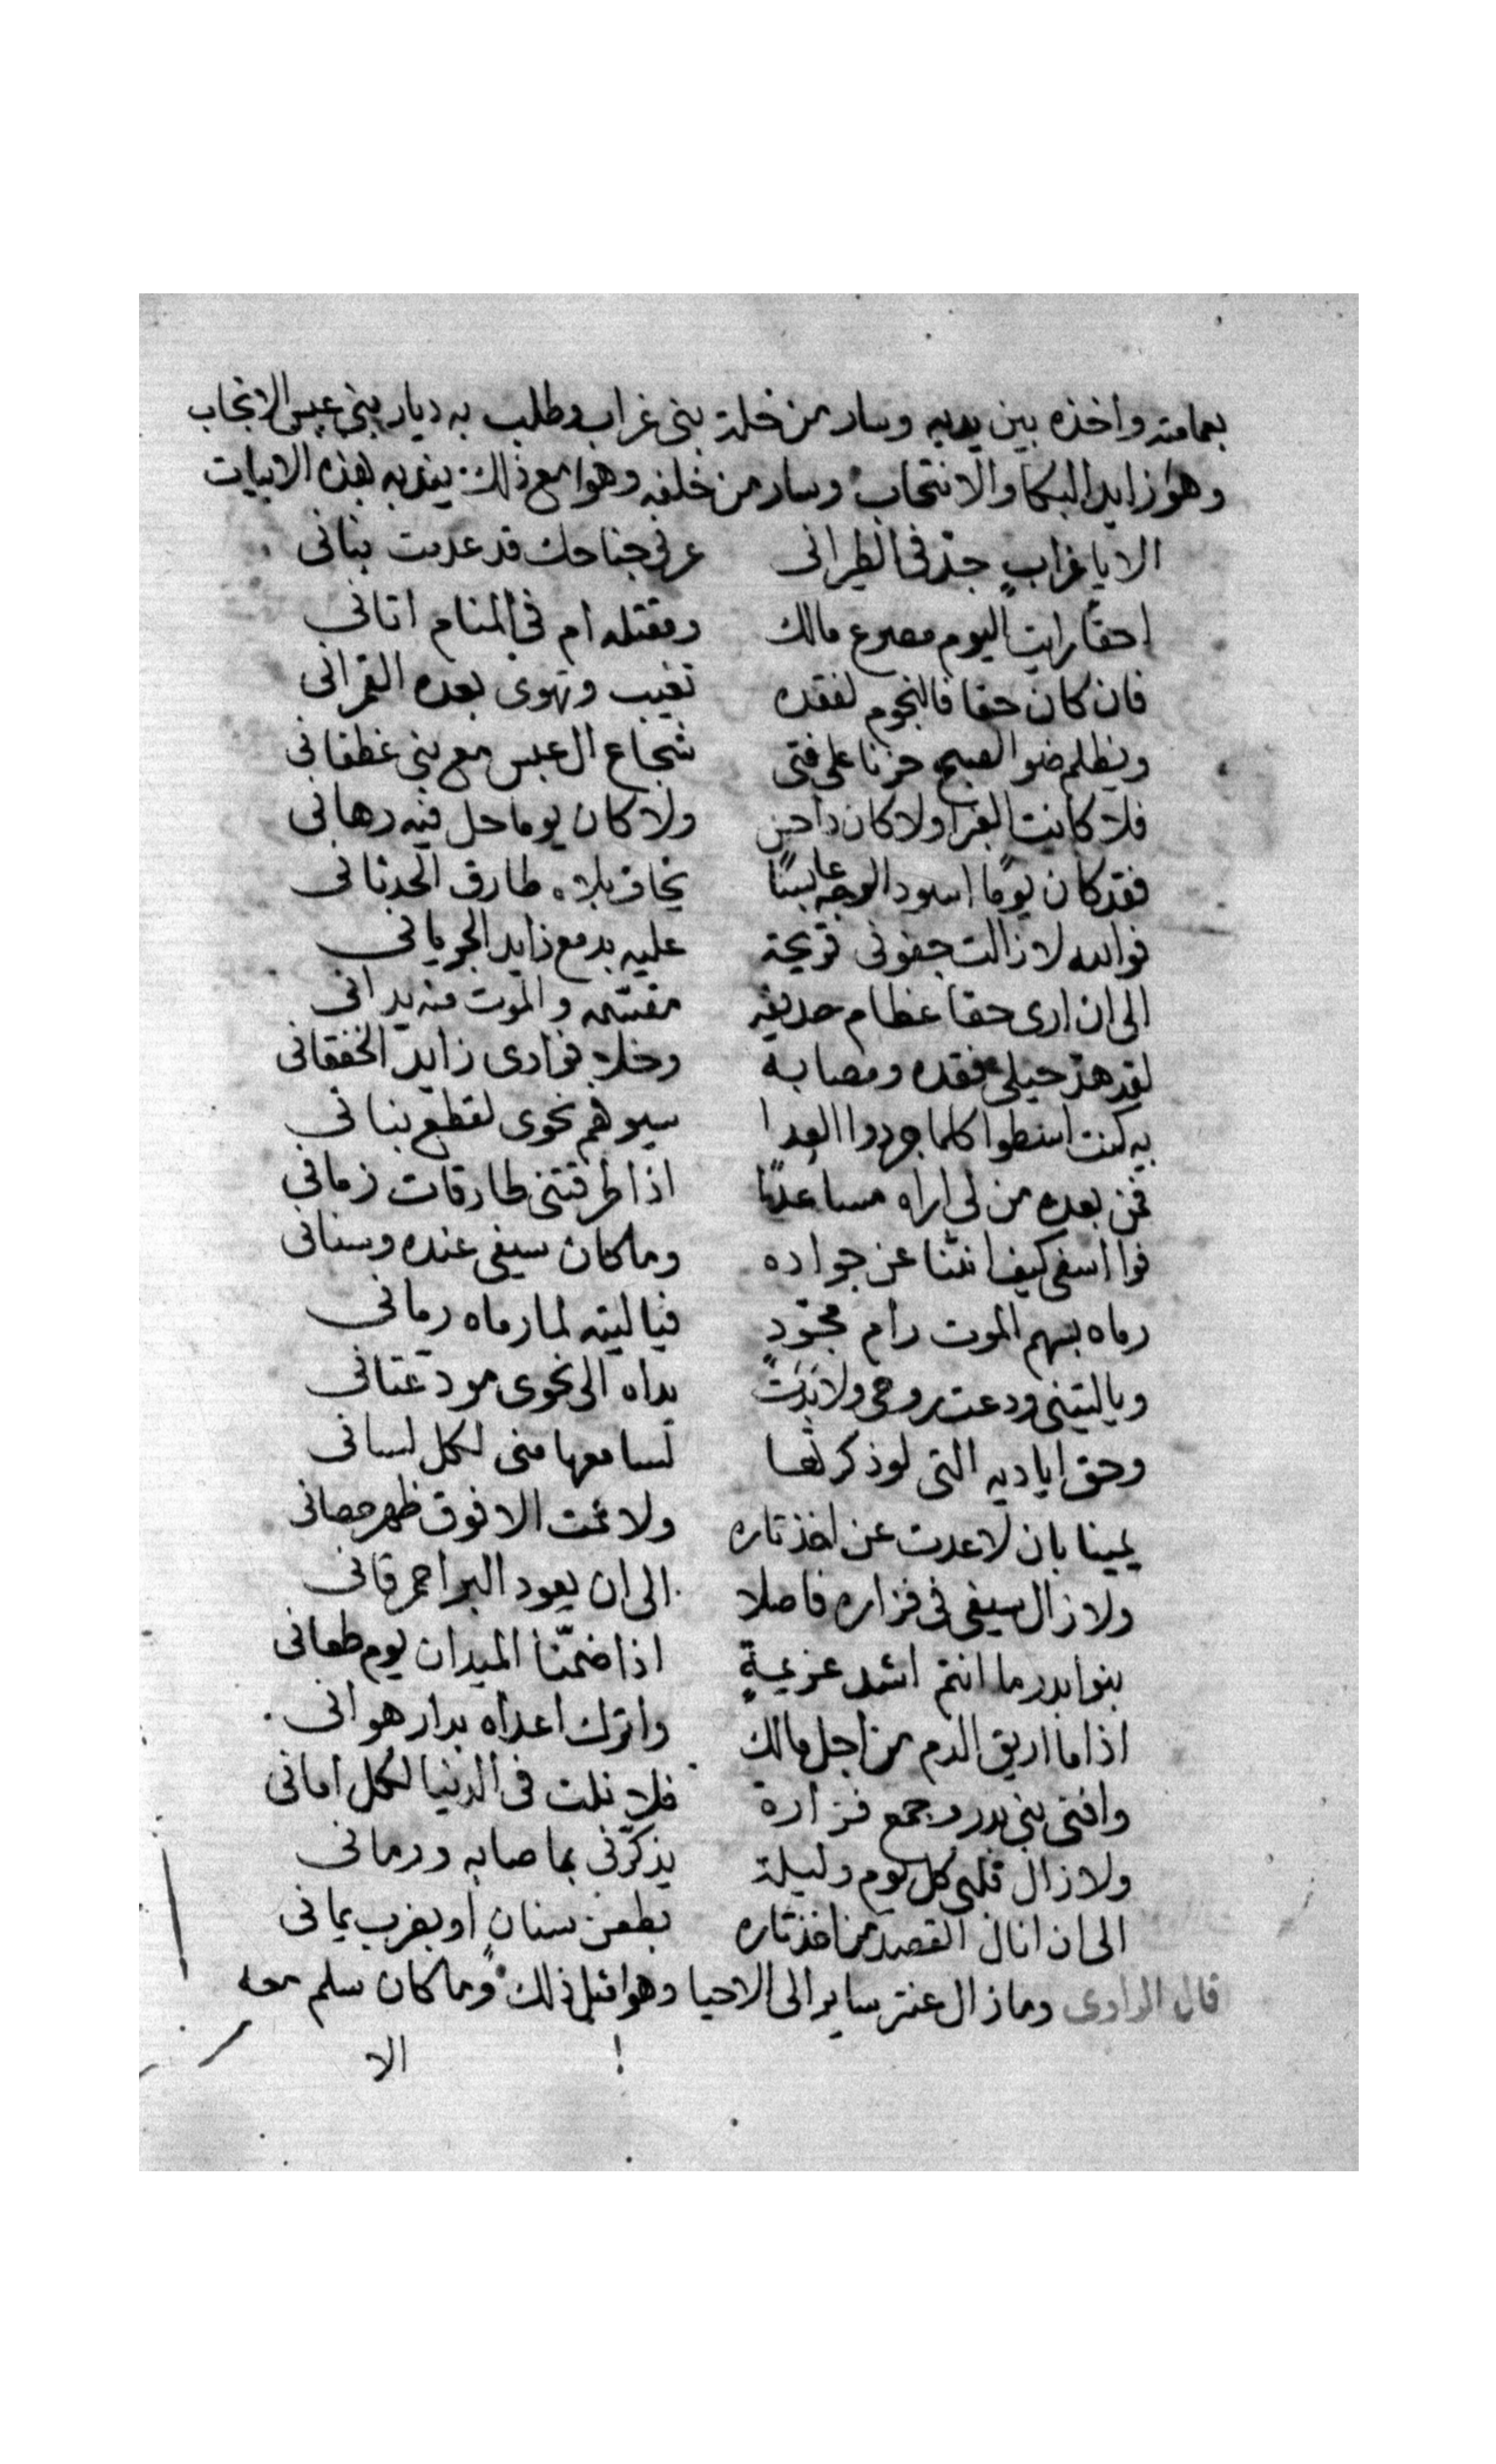 بعمامته واخذه بين يديه وسار من خلة بنى غراب وطلب به ديار بنى عبس الانجاب
وهو زايد البكا والانتحاب وسار من خلفه وهوا مع ذلك يندبه بهذه الابيات
الا يا غراب جد فى الطيرانى عرنى جناحك قد عدمت بنانى
احقا رايت اليوم مصرع مالك ومقتله ام فى المنام اتانى
فان كان حقا فالنجوم لفقده تغيب وتهوى بعده القمرانى
ويظلم ضو الصبح حزنا على فتى شجاع ال عبس مع بنى غطفانى
فلا كانت الغبرا ولا كان داحس ولا كان يوما حل فيه رهانى
فقد كان يوما اسود الوجه عابسا يخاف بلاه طارق الحدثانى
فوالله لا زالت جفونى قريحة عليه بدمع زايد الجريانى
الى ان ارى حقا عظام حديفه مقسمه والموت منه يدانى
لقد هد حيلى فقده ومصابه وخلا فوادى زايد الخفقانى
به كنت اسطوا كلما جردوا العدا سيوفهم نحوى لقطع بنانى
فمن بعده من لى اراه مساعدا اذا طرقتنى طارقات زمانى
فوا اسفى كيف انثنا عن جواده وما كان سيفى عنده وسنانى
رماه بسهم الموت رام مجود فيا ليته لما رماه رمانى
ويا ليتنى ودعت روحى ولا بدت يداه الى نحوى مودعتانى
وحق اياديه التى لو ذكرتها لسامعها منى لكل لسانى
يمينا بان لا عدت عن اخذ تاره ولا نمت الا فوق ظهر حصانى
ولا زال سيفى فى فزاره فاصلا الى ان يعود البر احمر قانى
بنوا بدر ما انتم اشد عزيمة اذا ضمنا الميدان يوم طعانى
اذا ما اريق الدم من اجل مالك واترك اعداه بدار هوانى
وافنى بنى بدر وجمع فزارة فلا نلت فى الدنيا لكل امانى
ولا زال قلبى كل يوم وليلة يذكرنى بما صابه ورمانى
الى ان انال القصد من اخذ تاره بطعن سنان او بضرب يمانى
قال الراوى وما زال عنتر ساير الى الاحيا وهوا قبل ذلك وما كان سلم معه
الا